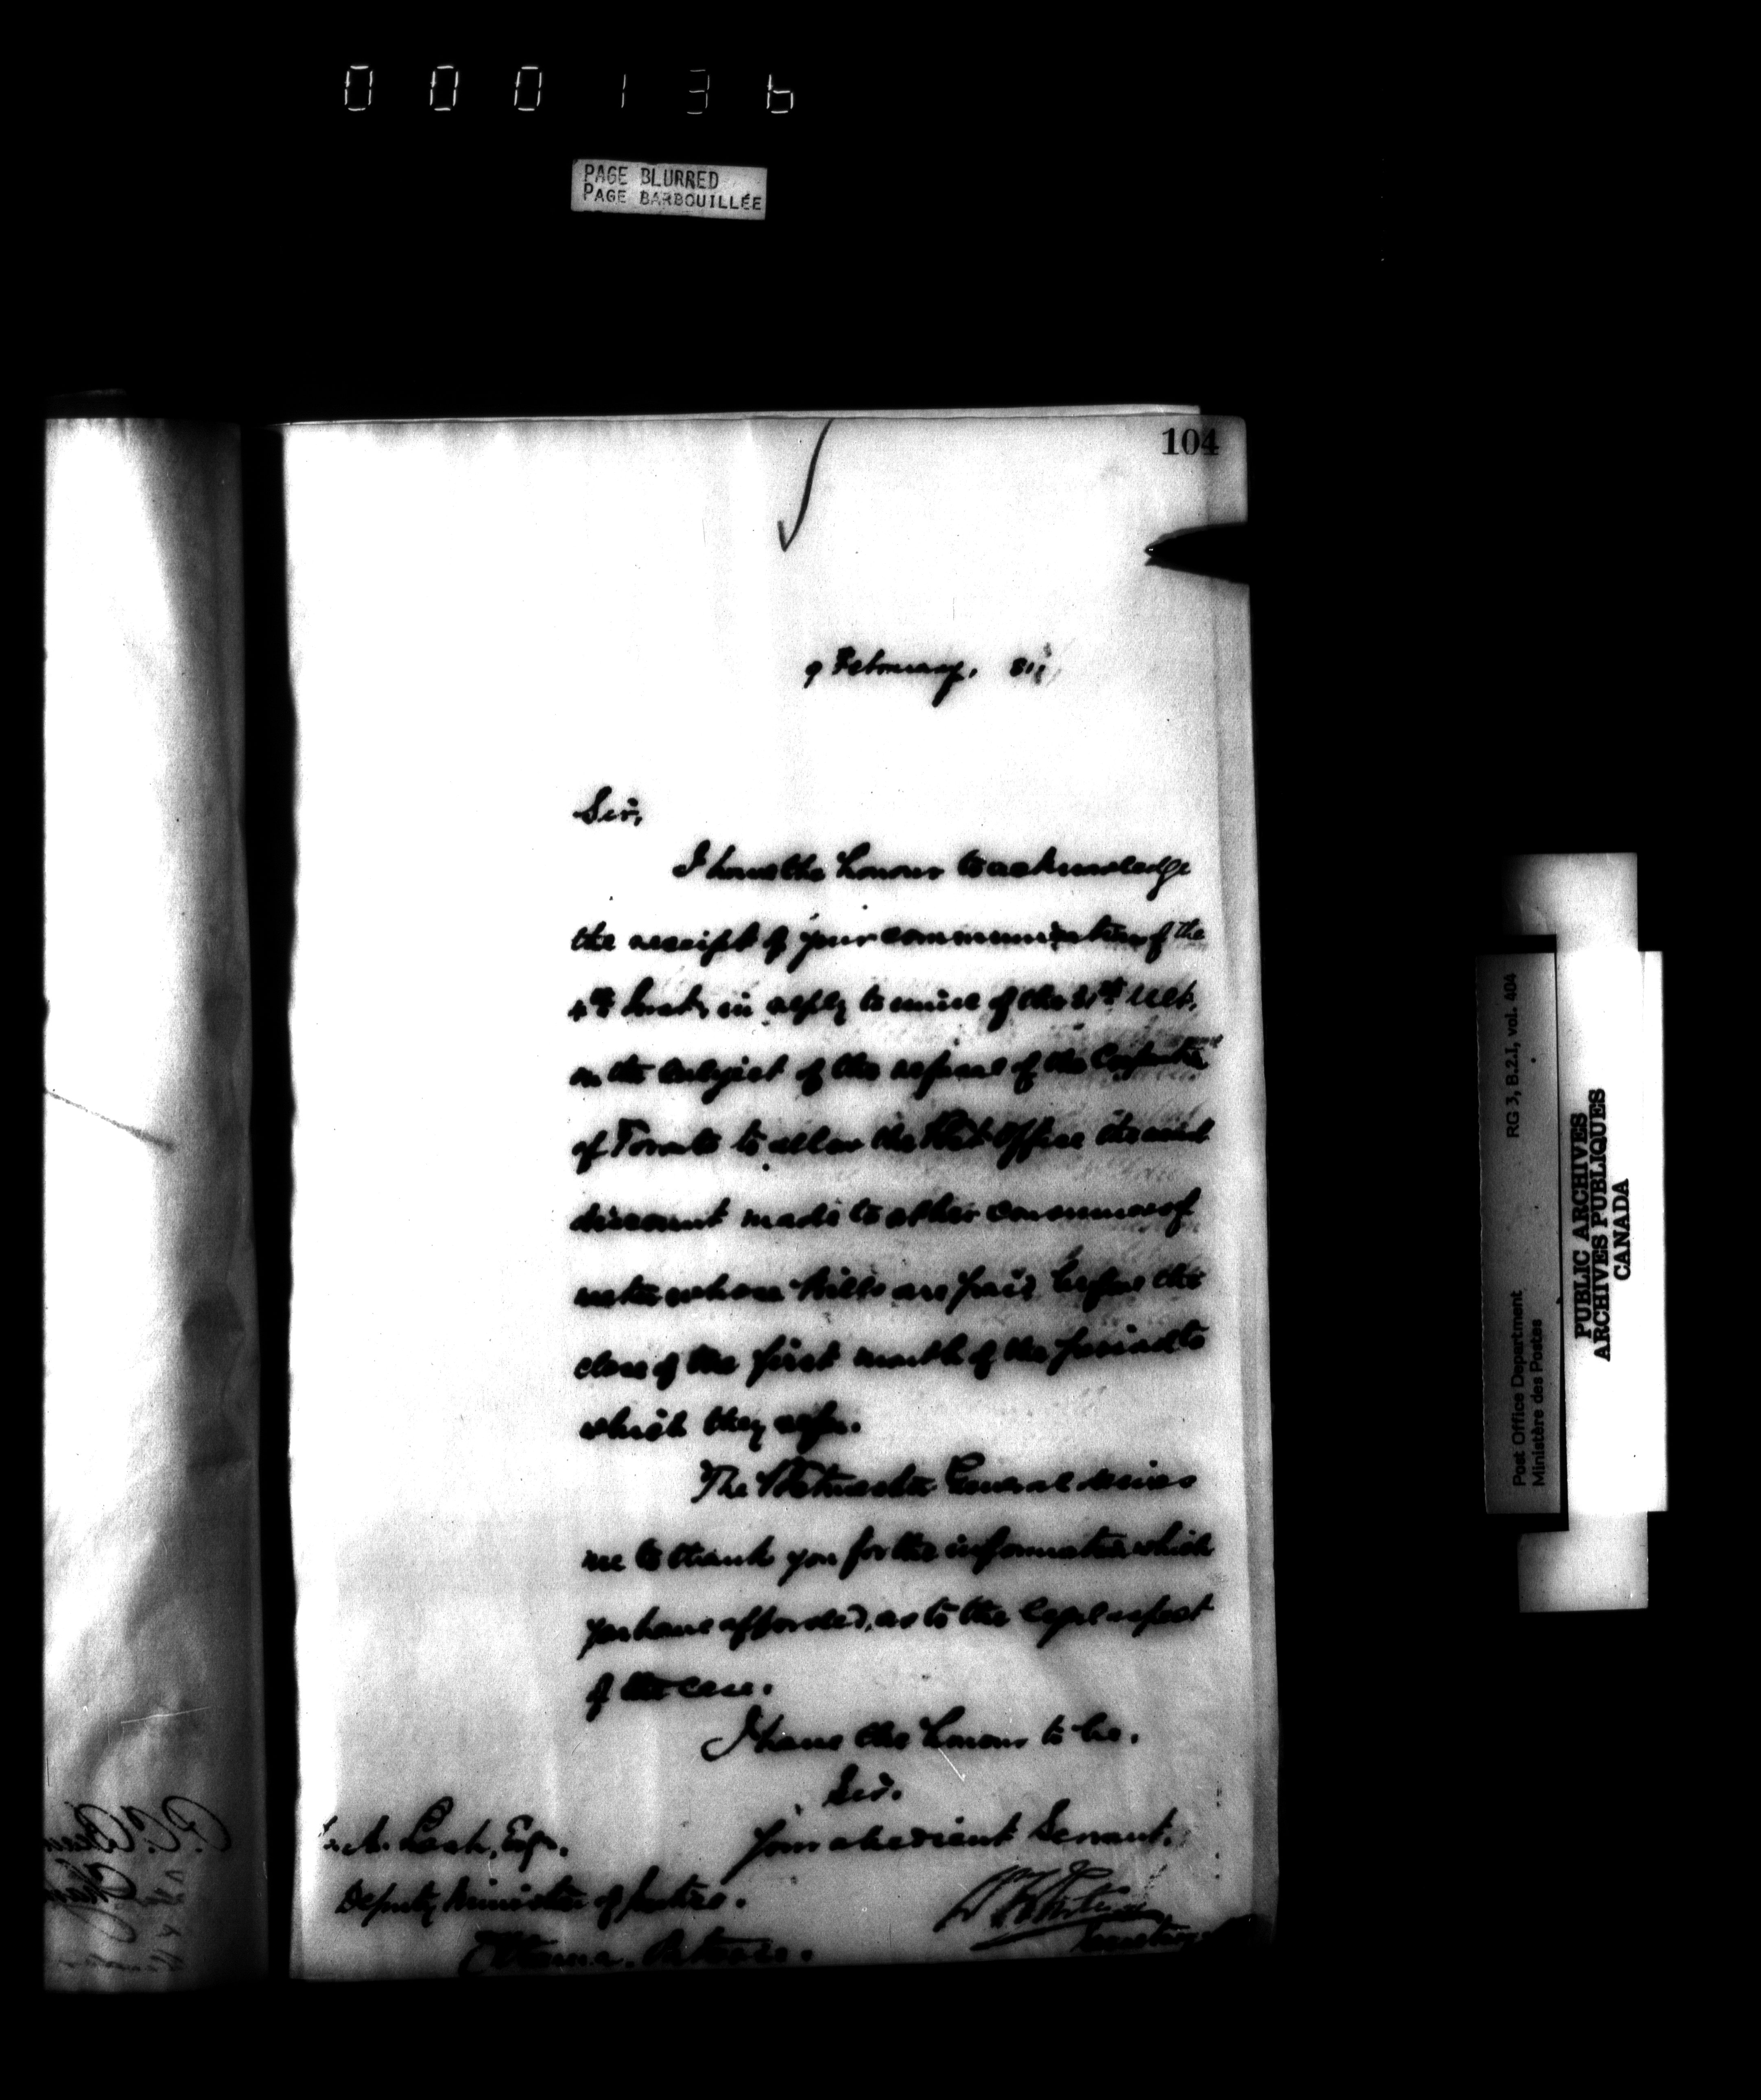 000136
PAGE BLURRED
PAGE BARBOUILLÉE
104
9 February, 81
Sir,
I have the honour to acknowledge
the receipt of your communication of the
4th Inst, in reply to mine of the 21st Ult.
on the subject of the refusal of the Corporation
of Toronto to allow the Post Office the usual
discount made to other consumers of
water whose bills are paid before the
close of the first month of the period to
which they refer.
The Postmaster General desires
me to thank you for the information which
you have afforded, as to the legal aspect
of the case.
I have the honour to be,
Sir,
Your obedient Servant,
A. Lash, Esqr.
Deputy Minister of Justice.
Ottawa, Ontario.
Secretary
Post Office Department
Ministère des Postes
RG 3, B.2.1, vol. 404
PUBLIC ARCHIVES
ARCHIVES PUBLIQUES
CANADA